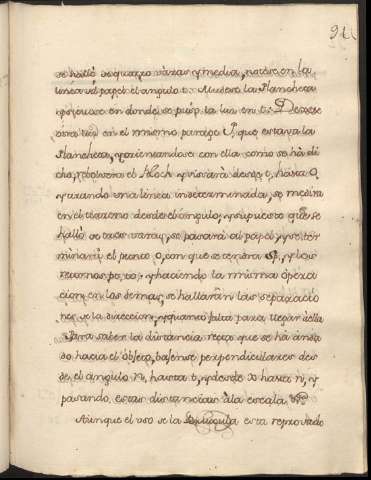 91
se halló de quatro varas y media, notese en la
linea del papel el angulo t. Mudese la Plancheta
y pongase en donde se puso la luz en t. Dexese
otra luz en el mismo parage que estava la
Plancheta, y orientandose con ella como se ha di
cho, se bolvera el y visará desde t, hasta O,
y tirando una linea indeterminada, se medira
en el terreno desde el angulo, y supuesto que se
halló de tres varas, se pasará al papel, y se ter
minará el punto O, con que se tendra y los
ramos po, to; y haciendo la misma opera
cion en los demas, se hallarán las separacio
nes de la direccion, y quanto falta para llegar a ella
Para saber la distancia recta que se ha anda
do hacia el objeto, bajense perpendiculares des
de el angulo n, hasta t, y desde x hasta n, y
pasando estas distancias à la escala &ca
Aunque el uso de la Brujula esta reprovado